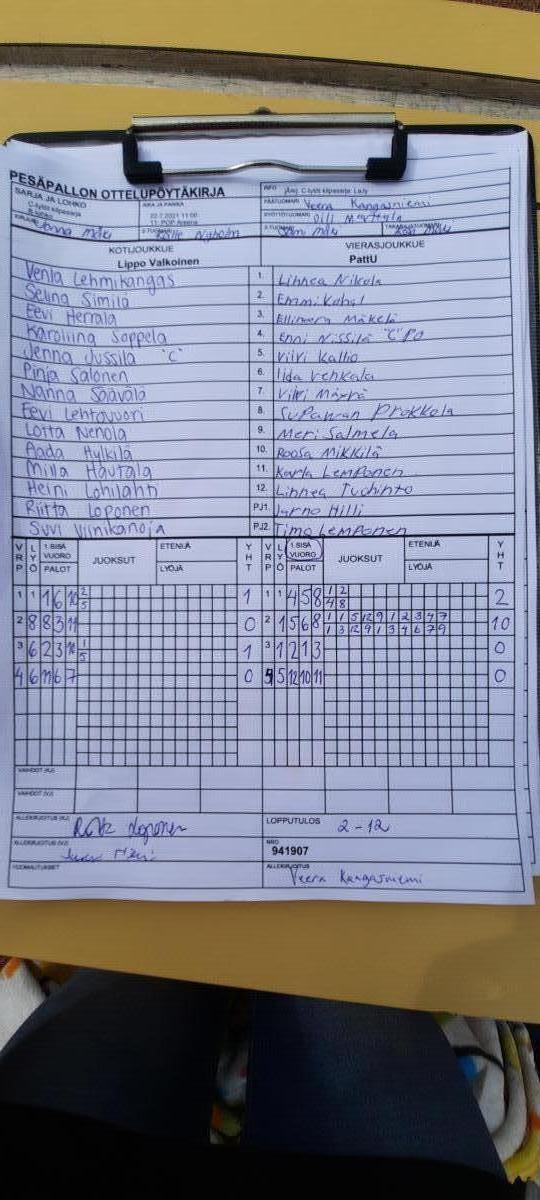 PESÄPALLON OTTELUPÖYTÄKIRJA
SARJA JA LOHKO
C-tytöt kilpasarja
B-lohko
AIKA JA PAIKKA
22.7.2021 11:00
11. POP Areena
INFO
KIRJURI Jonna Mäki
PÄÄTUOMARI Veera Kangasniemi
SYÖTTÖTUOMARI Olli Marttila
2-TUOMARI Kalle Nyholm
3-TUOMARI Sami Mäki
TAKARAJATUOMARI
KOTIJOUKKUE
Lippo Valkoinen
VIERASJOUKKUE
PattU
Venla Lehmikangas 1. Linnea Nikula
Selina Similä 2. Emmi
Eevi Herrala 3. Ellinoora Mäkelä
Karoliina Soppela 4. Enni Nissilä "C" PO
Jenna Jussila "C" 5. Vilvi Kallio
Pinja Salonen 6. Iida Vehkala
Nanna Säävälä 7.
Eevi Lehtovuori 8. Supawan Prokkola
Lotta Nenola 9. Meri Salmela
Aada Hylkilä 10. Roosa Mikkilä
Milla Hautala 11. Karla Lemponen
Heini Lohilahti 12. Linnea Tuohinto
Riitta Loponen PJ1. Jarno Hilli
Suvi Viinikanoja PJ2. Timo Lemponen
VRP LYÖ 1.SISÄVUORO PALOT JUOKSUT ETENIJÄ LYÖJÄ YHT VRP LYÖ 1.SISÄVUORO PALOT JUOKSUT ETENIJÄ LYÖJÄ YHT
1 1 1 6 10 2 1 1 1 4 5 8 1 2 2
5 4 8
2 8 8 3 11 0 2 1 5 6 8 1 1 5 12 9 1 2 3 4 7 10
1 3 12 9 1 3 4 6 7 9
3 6 2 3 10 1 1 3 1 2 1 3 0
5
4 6 11 6 7 0 5 5 12 10 11 0
VAIHDOT (KJ)
VAIHDOT (VJ)
ALLEKIRJOITUS (KJ) Loponen
LOPPUTULOS 2-12
ALLEKIRJOITUS (VJ)
NRO
941907
HUOMAUTUKSET
ALLEKIRJOITUS
Veera Kangasniemi